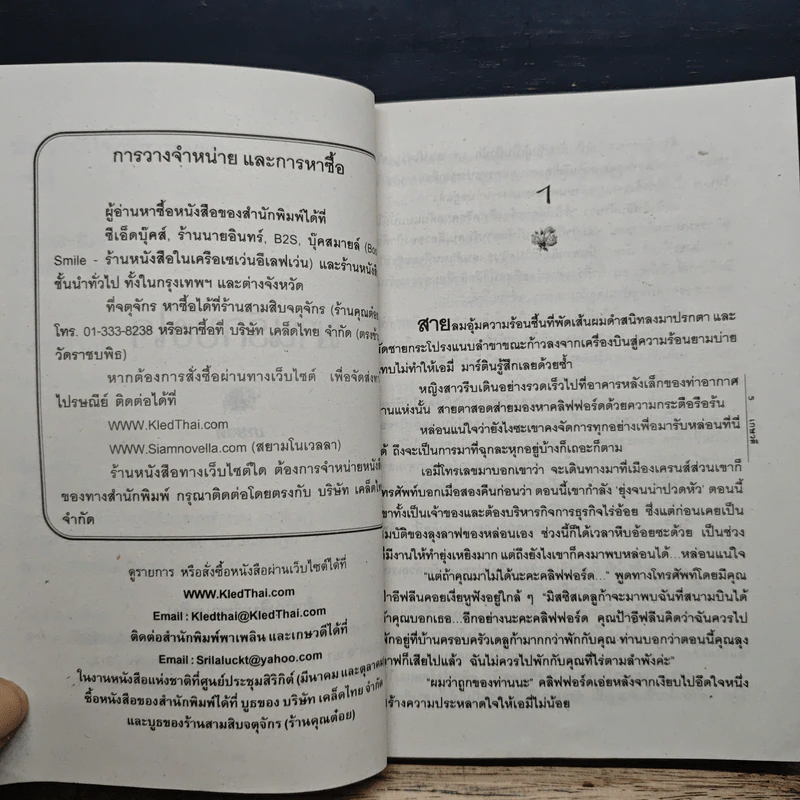 การวางจำหน่าย และการหาซื้อ
ผู้อ่านหาซื้อหนังสือของสำนักพิมพ์ได้ที่
ซีเอ็ดบุ๊คส์, ร้านนายอินทร์, B2S, บุ๊คสมายล์ (Boo
Smile - ร้านหนังสือในเครือเซเว่นอีเลฟเว่น) และร้านหนังสื
ชั้นนำทั่วไป ทั้งในกรุงเทพฯ และต่างจังหวัด
ที่จตุจักร หาซื้อได้ที่ร้านสามสิบจตุจักร (ร้านคุณต๋อย
โทร. 01-333-8238 หรือมาซื้อที่ บริษัท เคล็ดไทย จำกัด (ตรงข้า
วัดราชบพิธ)
หากต้องการสั่งซื้อผ่านทางเว็บไซต์ เพื่อจัดส่งท
ไปรษณีย์ ติดต่อได้ที่
WWW.KledThai.com
WWW.Siamnovella.com (สยามโนเวลลา)
ร้านหนังสือทางเว็บไซต์ใด ต้องการจำหน่ายหนังส
ของทางสำนักพิมพ์ กรุณาติดต่อโดยตรงกับ บริษัท เคล็ดไท
จำกัด
ดูรายการ หรือสั่งซื้อหนังสือผ่านเว็บไซต์ได้ที่
WWW.KledThai.com
Email : Kledthai@KledThai.com
ติดต่อสำนักพิมพ์พาเพลิน และเกษวดีได้ที่
Email : Srilaluckt@yahoo.com
ในงานหนังสือแห่งชาติที่ศูนย์ประชุมสิริกิต์ (มีนาคม และตุลาคม
ซื้อหนังสือของสำนักพิมพ์ได้ที่ บูธของ บริษัท เคล็ดไทย จำกัด
และบูธของร้านสามสิบจตุจักร (ร้านคุณต๋อย)
1
สายลมอุ้มความร้อนชื้นที่พัดเส้นผมดำสนิทลงมาปรกตา และ
ัดชายกระโปรงแนบลำขาขณะก้าวลงจากเครื่องบินสู่ความร้อนยามบ่าย
ทบไม่ทำให้เอมี่ มาร์ตินรู้สึกเลยด้วยซ้ำ
หญิงสาวรีบเดินอย่างรวดเร็วไปที่อาคารหลังเล็กของท่าอากาศ
านแห่งนั้น สายตาสอดส่ายมองหาคลิฟฟอร์ดด้วยความกระตือรือร้น
หล่อนแน่ใจว่ายังไงซะเขาคงจัดการทุกอย่างเพื่อมารับหล่อนที่นี่
ด้ ถึงจะเป็นการมาที่ฉุกละหุกอยู่บ้างก็เถอะก็ตาม
เอมี่โทรเลขมาบอกเขาว่า จะเดินทางมาที่เมืองเครนส์ส่วนเขาก็
ทรศัพท์บอกเมื่อสองคืนก่อนว่า ตอนนี้เขากำลัง 'ยุ่งจนน่าปวดหัว' ตอนนี้
ขาทั้งเป็นเจ้าของและต้องบริหารกิจการธุรกิจไร่อ้อย ซึ่งแต่ก่อนเคยเป็น
มบัติของลุงลาฟของหล่อนเอง ช่วงนี้ก็ได้เวลาหีบอ้อยซะด้วย เป็นช่วง
ี่มีงานให้ทำยุ่งเหยิงมาก แต่ถึงยังไงเขาก็คงมาพบหล่อนได้...หล่อนแน่ใจ
"แต่ถ้าคุณมาไม่ได้นะคะคลิฟฟอร์ด..." พูดทางโทรศัพท์โดยมีคุณ
ป้าอีฟลีนคอยเงี่ยหูฟังอยู่ใกล้ ๆ "มิสซิสเดลูก้าจะมาพบฉันที่สนามบินได้
้าคุณบอกเธอ...อีกอย่างนะคะคลิฟฟอร์ด คุณป้าอีฟลีนคิดว่าฉันควรไป
ักอยู่ที่บ้านครอบครัวเดลูก้ามากกว่าพักกับคุณ ท่านบอกว่าตอนนี้คุณลุง
าฟก็เสียไปแล้ว ฉันไม่ควรไปพักกับคุณที่ไร่ตามลำพังค่ะ"
"ผมว่าถูกของท่านนะ" คลิฟฟอร์ดเอ่ยหลังจากเงียบไปอึดใจหนึ่ง
ร้างความประหลาดใจให้เอมี่ไม่น้อย
5
เกษวดี